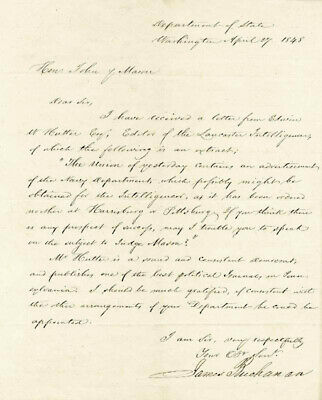 Department of State
Washington April 27 1848
Hon John Y Mason
Dear Sir,
I have received a letter from Edwin
W Hutter Esq; Editor of the Lancaster Intelligencer
of which the following is an extract;
"The Union of yesterday contains an advertisement
of the Navy Department, which possibly might be
obtained for the Intelligencer, as it has been ordered
neither at Harrisburg or Pittsburg. If you think there
is any prospect of success, may I trouble you to speak
on the subject to Judge Mason?"
Mr Hutter is a sound and consistent democrat,
and publishes one of the best political Journals in Penn
sylvania. I should be much gratified, if consistent with
the other arrangements of your Department he could be
appointed.
I am Sir, very respectfully
Your Obt Servt.
James Buchanan